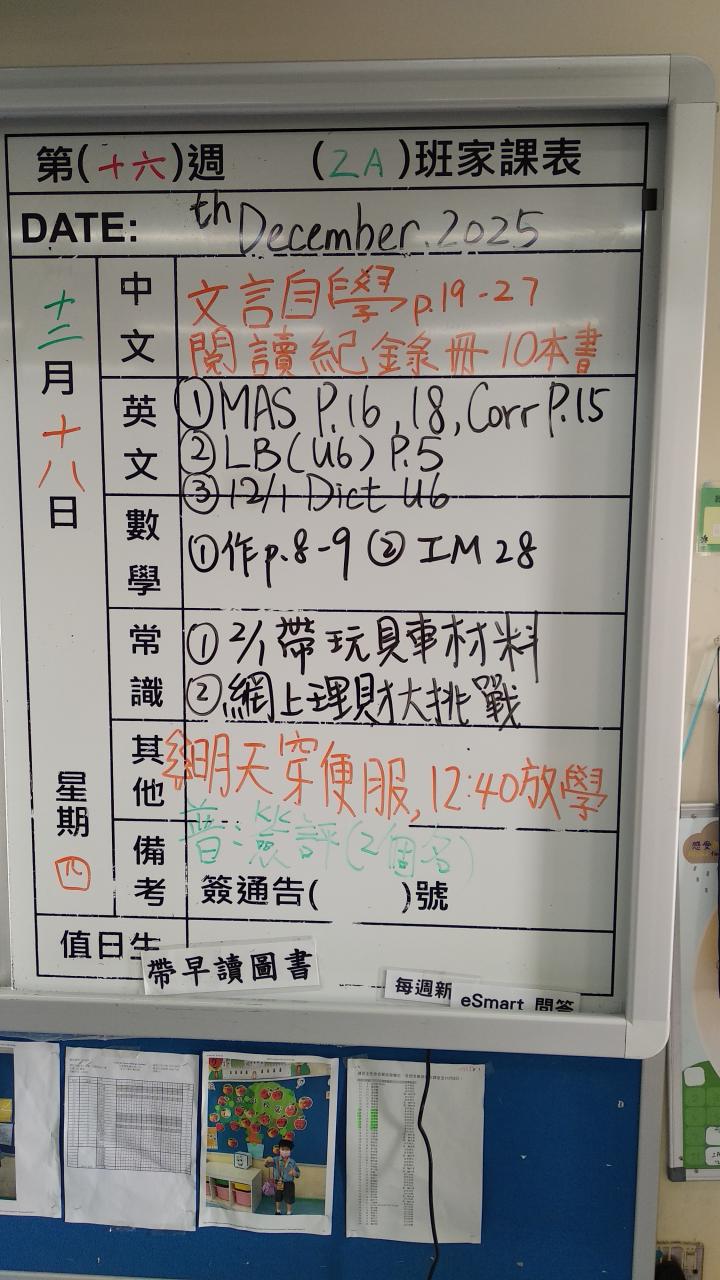 第(十六)週 (2A)班家課表
DATE: th December.2025
十二月十八日
星期四
中文
文言自學 p.19-27
閱讀紀錄冊 10本書
英文
①MAS P.16, 18, Corr P.15
②LB(U6) P.5
③12/1 Dict U6
數學
①作p.8-9 ②IM 28
常識
①2/1帶玩具車材料
②網上理財大挑戰
其他
明天穿便服,12:40放學
備考
普: 評(2個名)
簽通告( )號
值日生
帶早讀圖書
每週新
eSmart 問答